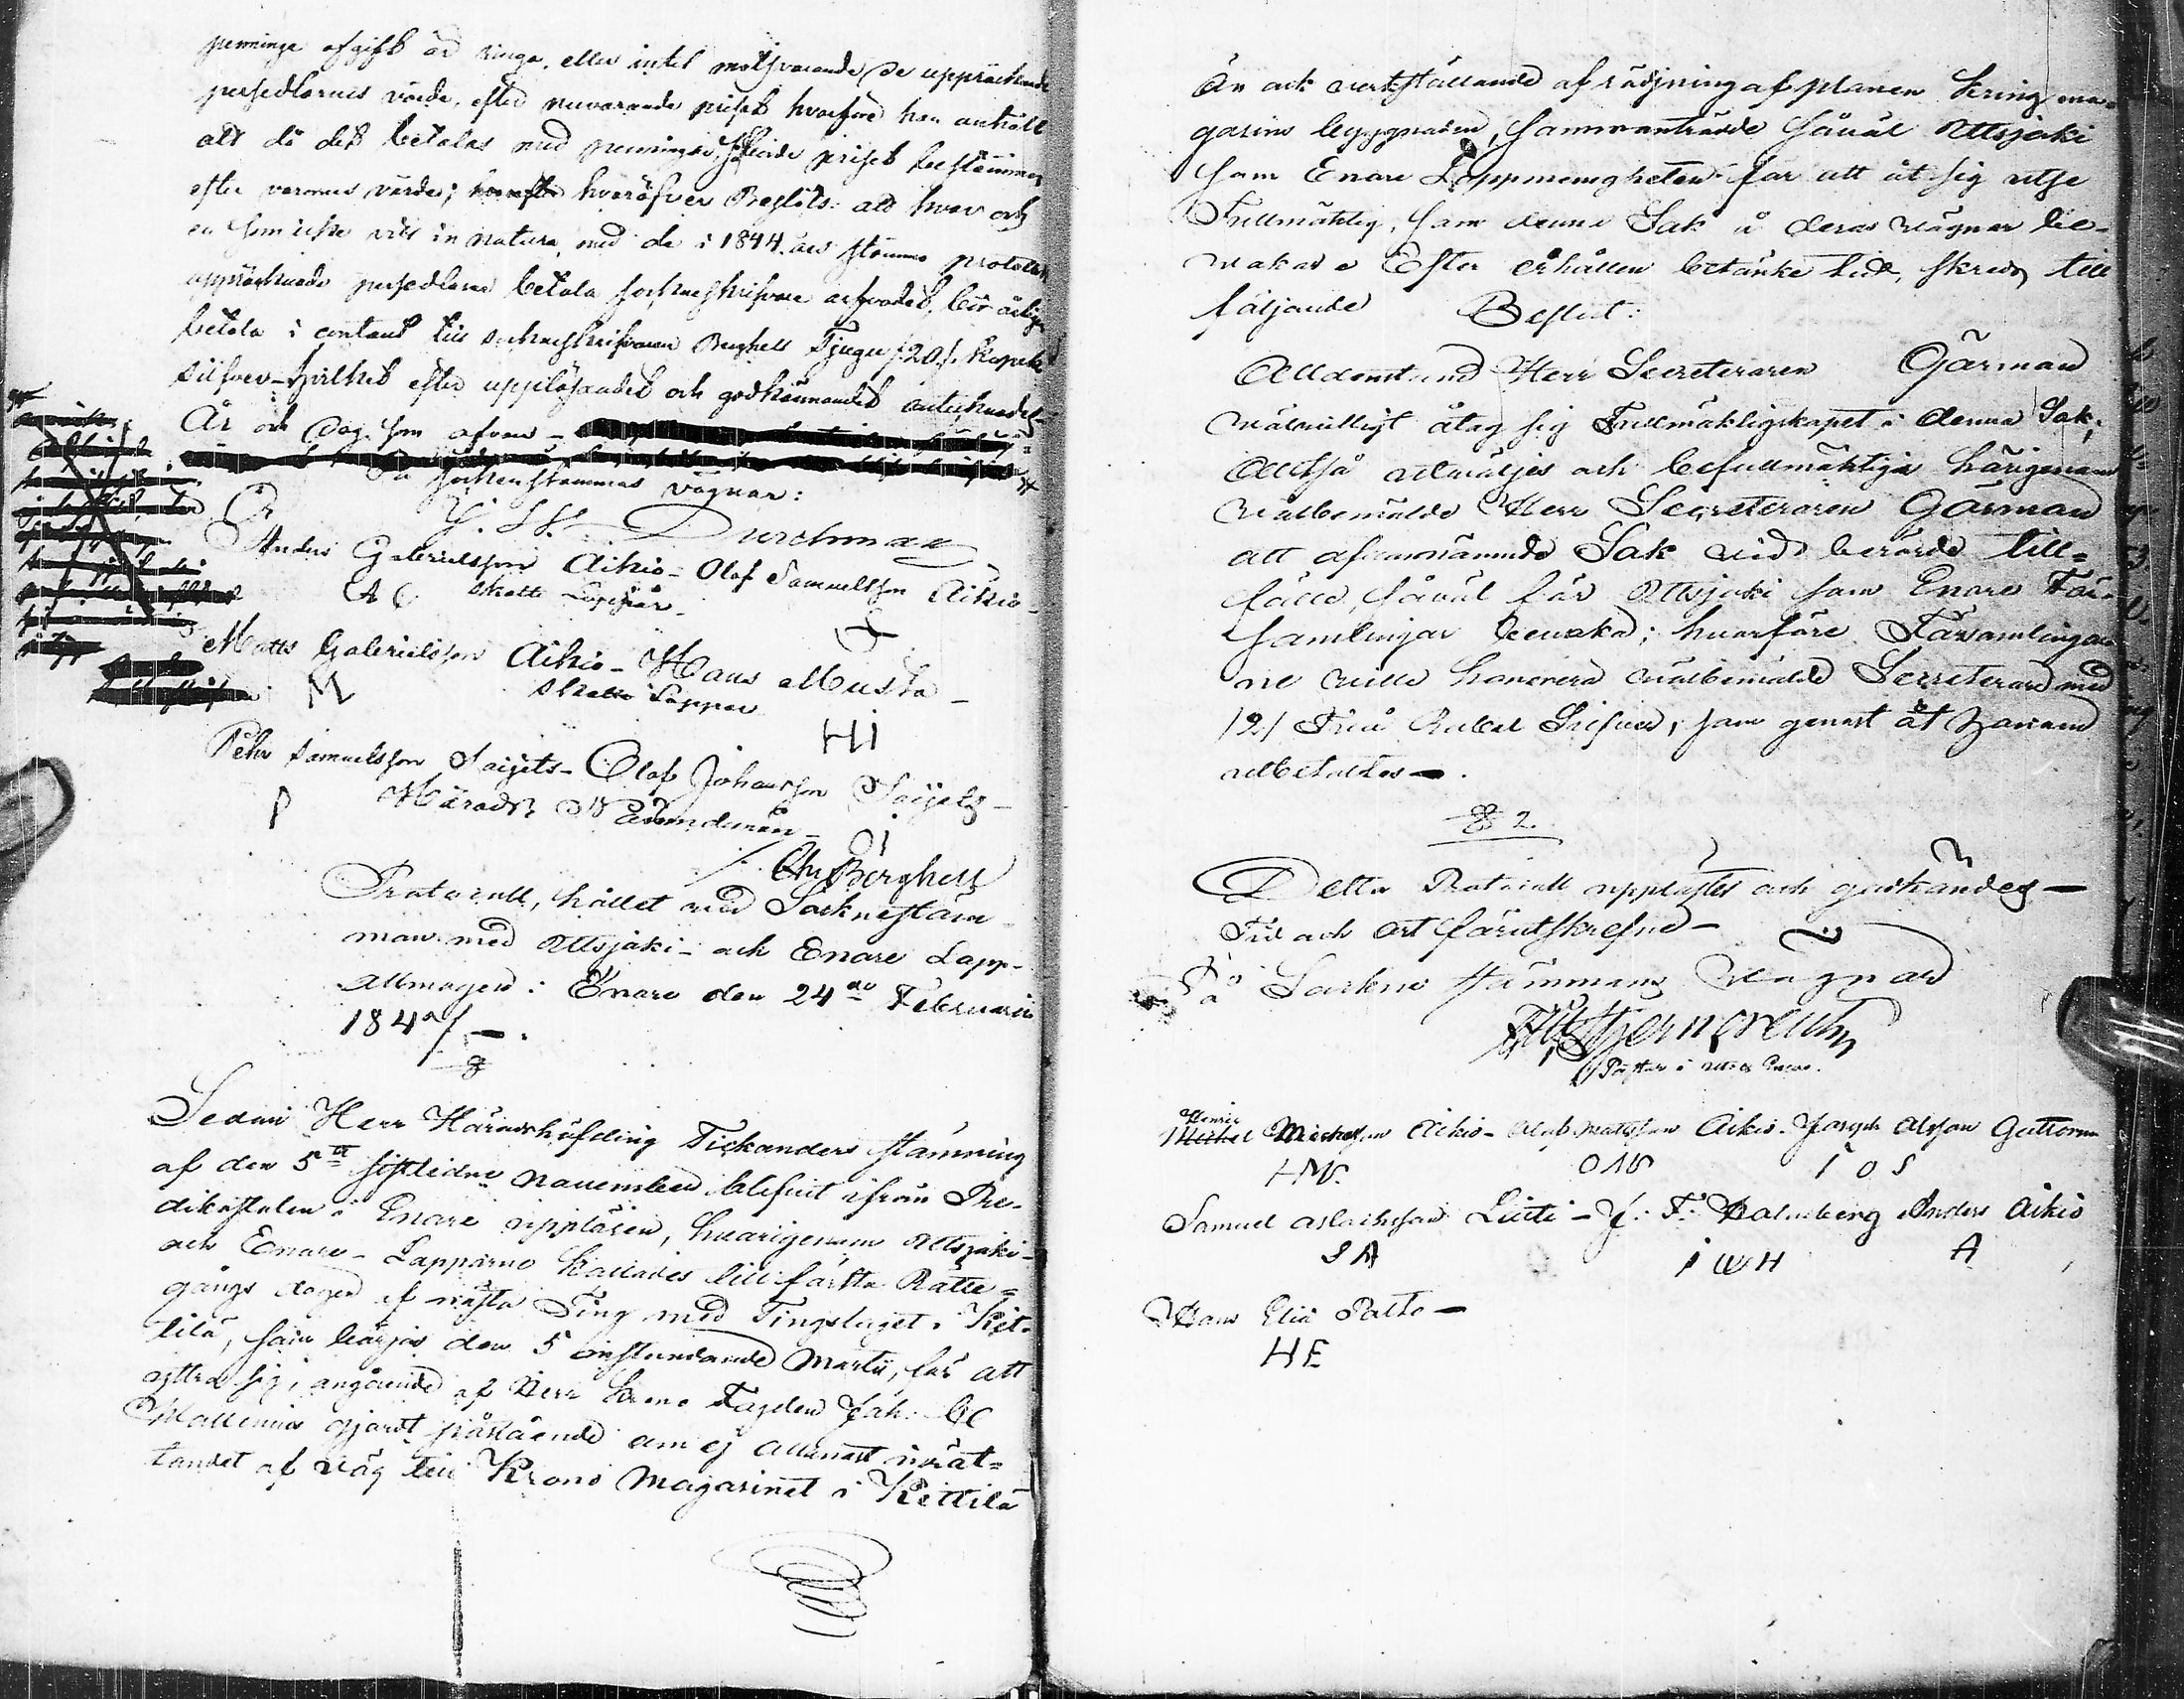 penninge afgift är ringa, eller intet motsvarande de uppräknade
persedlarnes värde, efter nuvarande priset hvarföre han anhöll
att då det betalas med penningar, skulle priset bestämmas
efter varornes värde; hvaröfver Beslöts: att hvar och
en som icke vill in natura, med de i 1844 års stämmo protokoll
uppräknade persedlarne betala sockneskrifvare arfvodet, bör årligen
betala i contant till sockneskrifvaren Berghell Tjugu /20/ kopek
silfver - hvilket efter uppläsandet och godkännandet antecknades
År och Dag som ofvan -
På sockenstämmas vägnar:
J. W. Durchman
Anders Gabrielsson Aikio - Olof Samuelsson Aikio -
AG Skatte Lappar.
Matts Gabrielsson Aikio - Hans Musta -
M Skatte Lappar
HI
Pehr Samuelsson Saijets - Olof Johansson Saijets -
P Härads Nämndemän - OI
/: Chr Berghell
Protocoll, hållet vid Sockne stäm-
man med Utsjoki - och Enare Lapp-
Allmogen i Enare den 24de Februarii
184
§
Sedan Herr Häradshöfding Fickanders stämning
af den 5te sistledne November blifvit ifrån Pre-
dikostolen i Enare uppläsen, hvarigenom Utsjoki -
och Enare - Lapparne kallades till första Rätte-
gångs dagen af nästa Ting med Tingslaget i Kit-
tilä, som börjas den 5 instundande Martii, för att
yttra sig, angående af Herr Krono Fogden Joh:
Wallenius gjordt påstående om ej allenast inrät-
tandet af väg till Krono Magasinet i Kittilä
Än ock verkställande af rödjning af planen kring ma-
gasins byggnaden, sammanträdde såväl Utsjoki
som Enare Lappmenigheten för att åt sig utse
Fullmäktig, som denna Sak å deras vägnar be-
vakar. Efter erhållen betänke tid, skreds till
följande Beslut:
Alldenstund Herr Secreteraren Görman
välvilligt åtag sig Fullmäktigskapet i denna Sak,
Alltså utväljes och befullmäktigas härigenom
välbemälde Herr Secreteraren Görman
att ofvannämnde Sak vid berörde till-
fälle, såväl för Utsjoki som Enare För-
samlingar bevaka; hvarföre Församlingar-
ne ville honorera välbemälde Secreterare med
/2/ Två Rubel Silfver, som genast åt honom
utbetaltes -.
§ 2.
Detta Protocoll upplästes och godkändes -
Tid och ort förutskrefne -
På Sockne stämmans vägnar
Stjerncreutz
Pastor i Utsj. Enare.
Henric Michelsson Aikio - Olof Mattsson Aikio - Joseph Olsson Guttorm
HM. OM I O S
Samuel Aslachsson Lütti - J: F: Holmberg Anders Aikio
S A I W H A
Hans Eliæ Valle -
HE